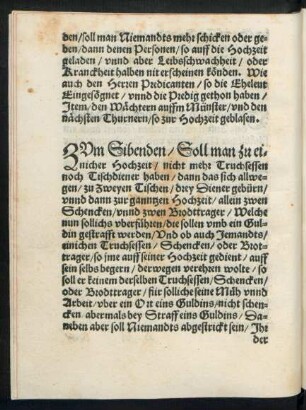 den/soll man Niemandts mehr schicken oder ge-
ben/dann denen Personen/so auff die Hochzeit
geladen/vnnd aber Leibsschwachheit/oder
Kranckheit halben nit erscheinen könden. Wie
auch den Herren Predicanten/so die Eheleut
Eingesägnet/vnnd die Predig gethon haben/
Item/den Wächtern auffm Münster/vnd den
nächsten Thurnern/so zur Hochzeit geblasen.
ZVm Sibenden/Soll man zu ei-
nicher Hochzeit/nicht mehr Truchsessen
noch Tischdiener haben/dann das sich allwe-
gen/zu Zweyen Tischen/drey Diener gebürn/
vnnd dann zur gantzen Hochzeit/allein zwen
Schencken/vnnd zwen Brodttrager/Welche
nun sollichs vberführen/die sollen vmb ein Gul-
din gestrafft werden/Vnd ob auch Jemandts/
einichen Truchsessen/Schencken/oder Brot-
trager/so jme auff seiner Hochzeit gedient/auff
sein selbs begern/derwegen verehren wolte/so
soll er keinem derselben Truchsessen/Schencken/
oder Brodttrager/für solliche seine Müh vnnd
Arbeit/vber ein Ort eins Guldins/nicht schen-
cken abermals bey Straff eins Guldins/Da-
neben aber soll Niemandts abgestrickt sein/Ihr
der